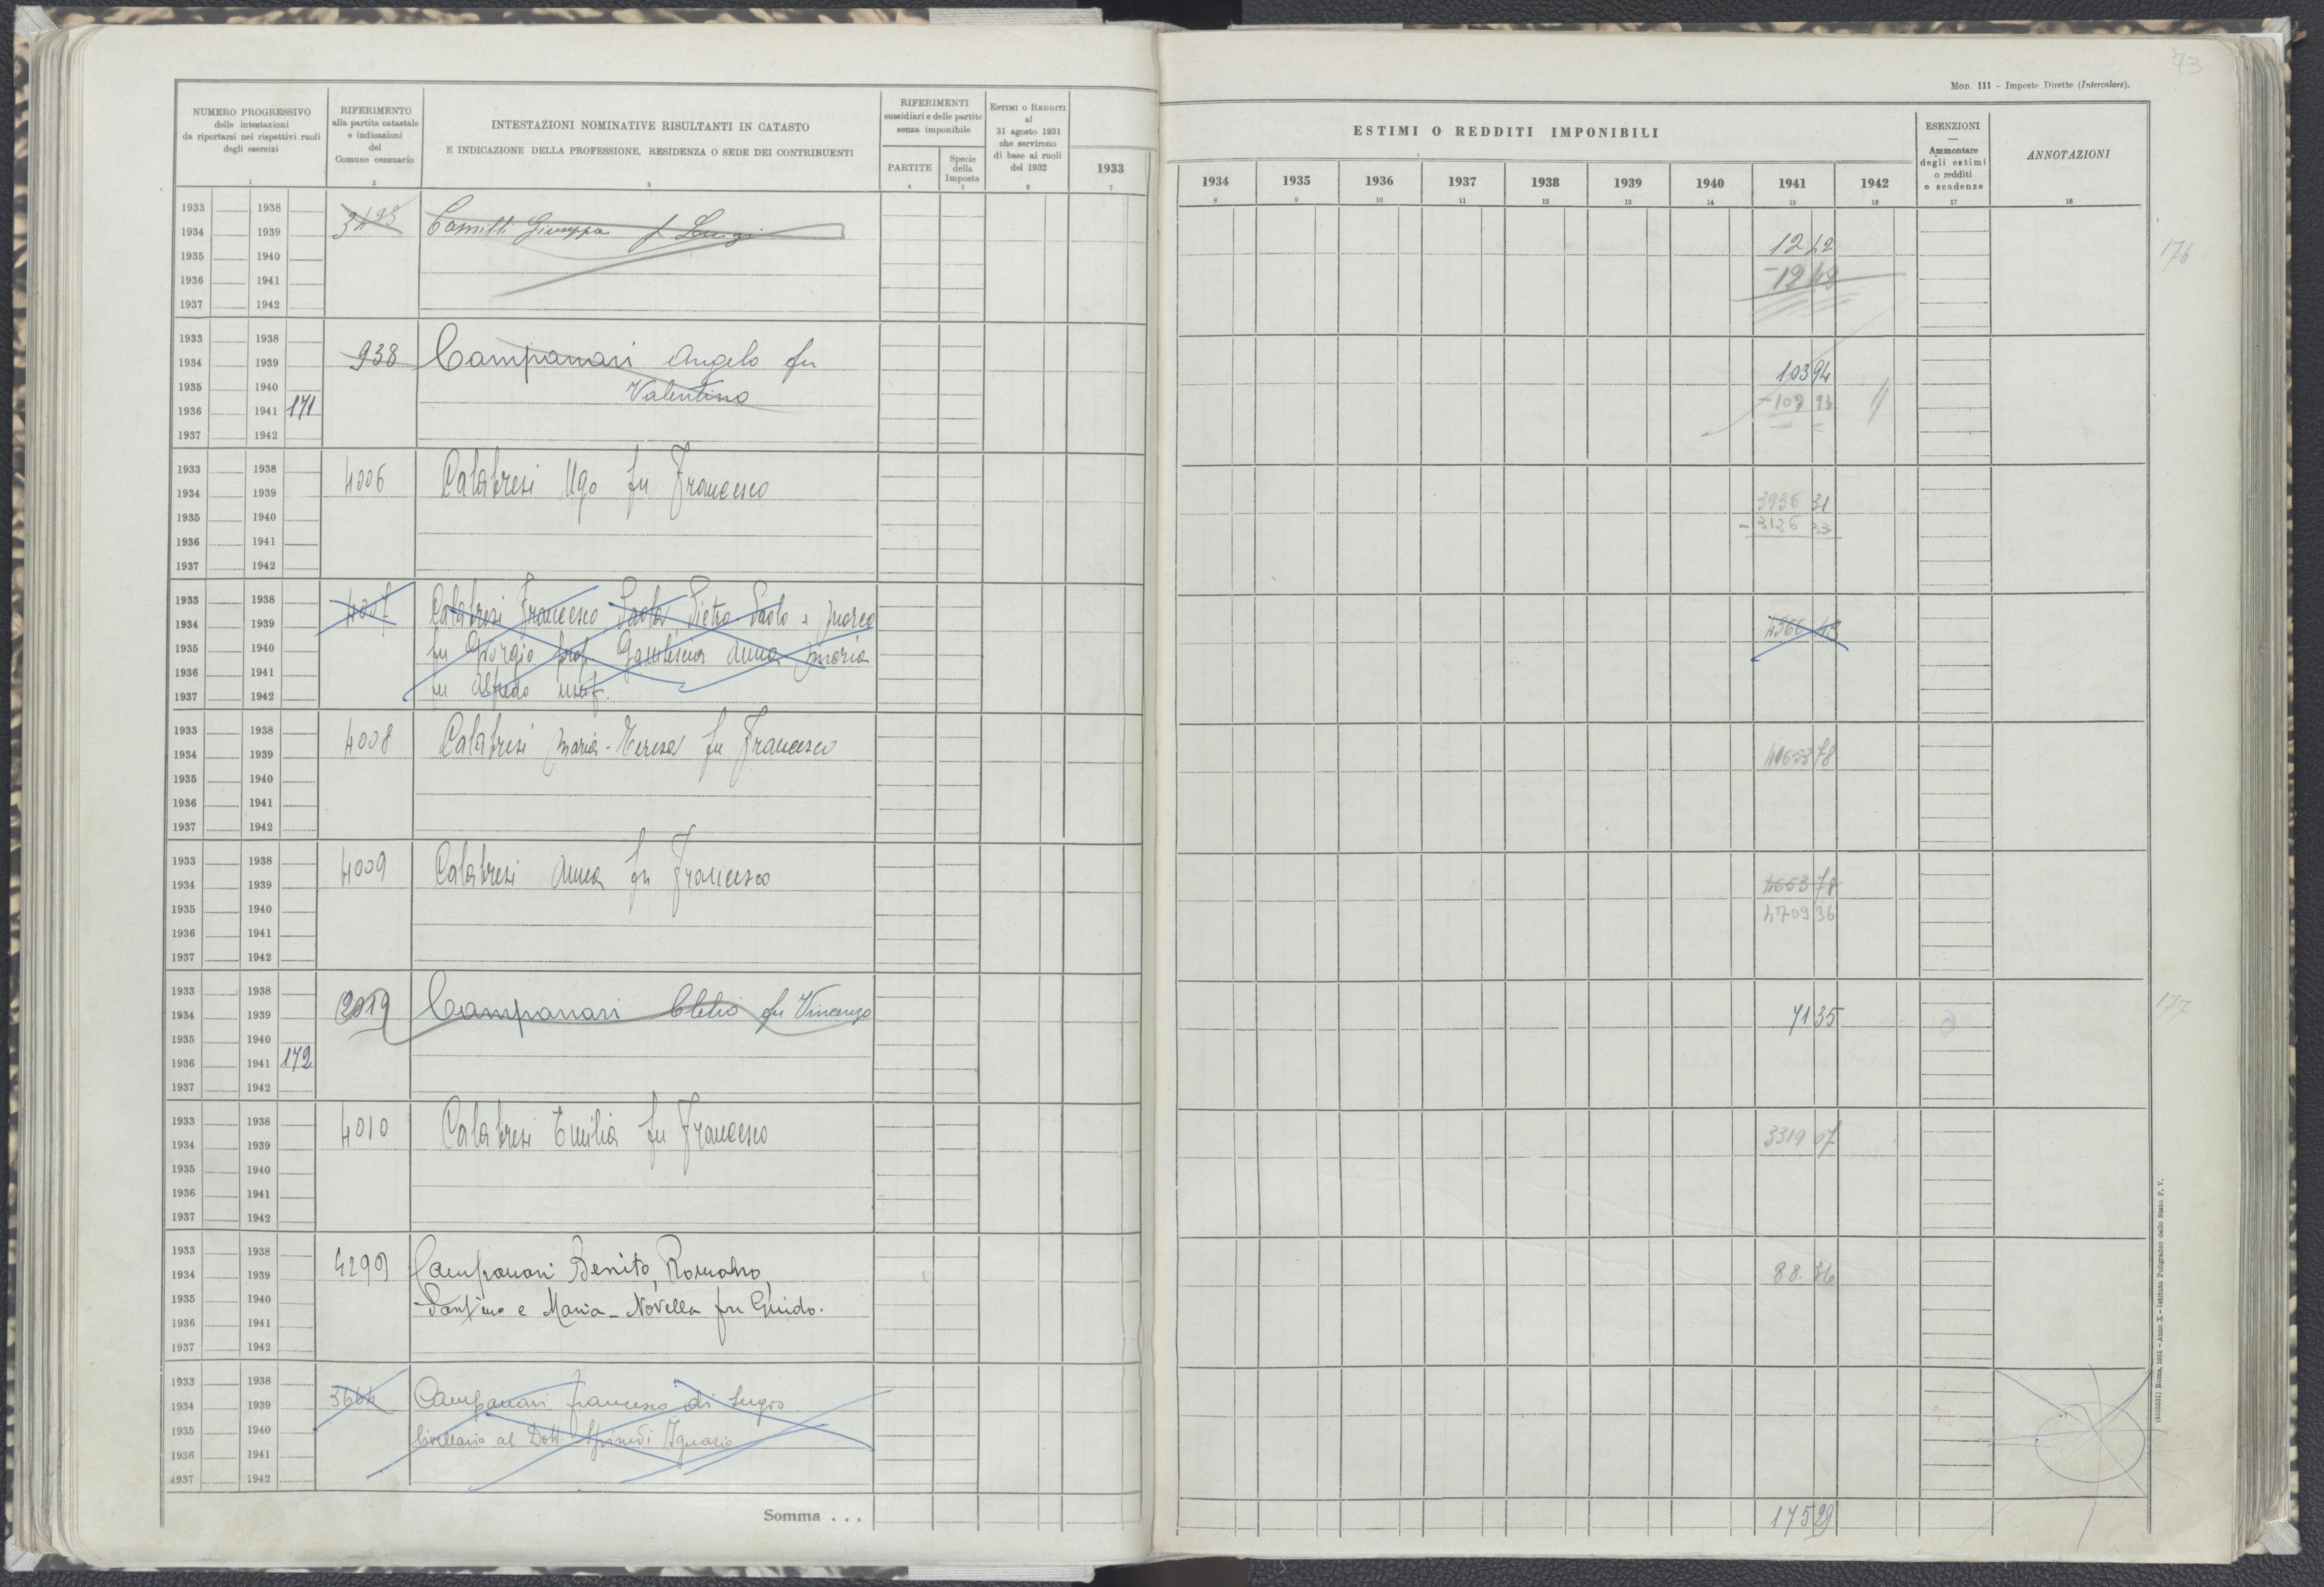 73
Mod. 111 - Imposte Dirette (Intercalare).
NUMERO PROGRESSIVO
delle intestazioni
da riportarsi nei rispettivi ruoli
degli esercizi
1
RIFERIMENTO
alla partita catastale
e indicazioni
del
Comune censuario
2
INTESTAZIONI NOMINATIVE RISULTANTI IN CATASTO
E INDICAZIONE DELLA PROFESSIONE, RESIDENZA O SEDE DEI CONTRIBUENTI
3
RIFERIMENTI
sussidiari e delle partite
senza imponibile
PARTITE
4
Specie
della
Imposta
5
ESTIMI O REDDITI
al
31 agosto 1931
che servirono
di base ai ruoli
del 1932
6
1933
7
ESTIMI O REDDITI IMPONIBILI
1934 1935 1936 1937 1938 1939 1940 1941 1942
8 9 10 11 12 13 14 15 16
ESENZIONI
—
Ammontare
degli estimi
o redditi
e scadenze
17
ANNOTAZIONI
18
1933 1938
1934 1939 3193 Camilli Giuseppa f Luigi 12 42
1935 1940 176
1936 1941 -12 42
1937 1942
1933 1938
1934 1939 938 Campanari Angelo fu 103 94
1935 1940 Valentino
1936 1941 171 -103 94
1937 1942
1933 1938
1934 1939 4006 Calabresi Ugo fu Francesco 3936 31
1935 1940 -3126 33
1936 1941
1937 1942
1933 1938
1934 1939 4007 Calabresi Francesco Paola Pietro Paolo e Marco 4366 43
1935 1940 fu Giorgio prop Anna Maria
1936 1941
1937 1942 fu Alfredo usuf.
1933 1938
1934 1939 4008 Calabresi Maria-Teresa fu Francesco 78
1935 1940
1936 1941
1937 1942
1933 1938
1934 1939 4009 Calabresi Anna fu Francesco 4653 78
1935 1940 4709 36
1936 1941
1937 1942
1933 1938
1934 1939 2019 Campanari Clelio fu Vincenzo 71 35 177
1935 1940
1936 1941 172
1937 1942
1933 1938
1934 1939 4010 Calabresi Emilia fu Francesco 3319 07
1935 1940
1936 1941
1937 1942
1933 1938
1934 1939 4299 Campanari Benito, Romano, 88. 36
1935 1940 Santino e Maria-Novella fu Guido.
1936 1941
1937 1942
1933 1938
1934 1939 3644 Campanari Francesco di Sergio
1935 1940 livellario al Dott. Ignazio
1936 1941
1937 1942
Somma . . . 175 29
Roma, 1931 - Anno X - Istituto Poligrafico dello Stato P. V.